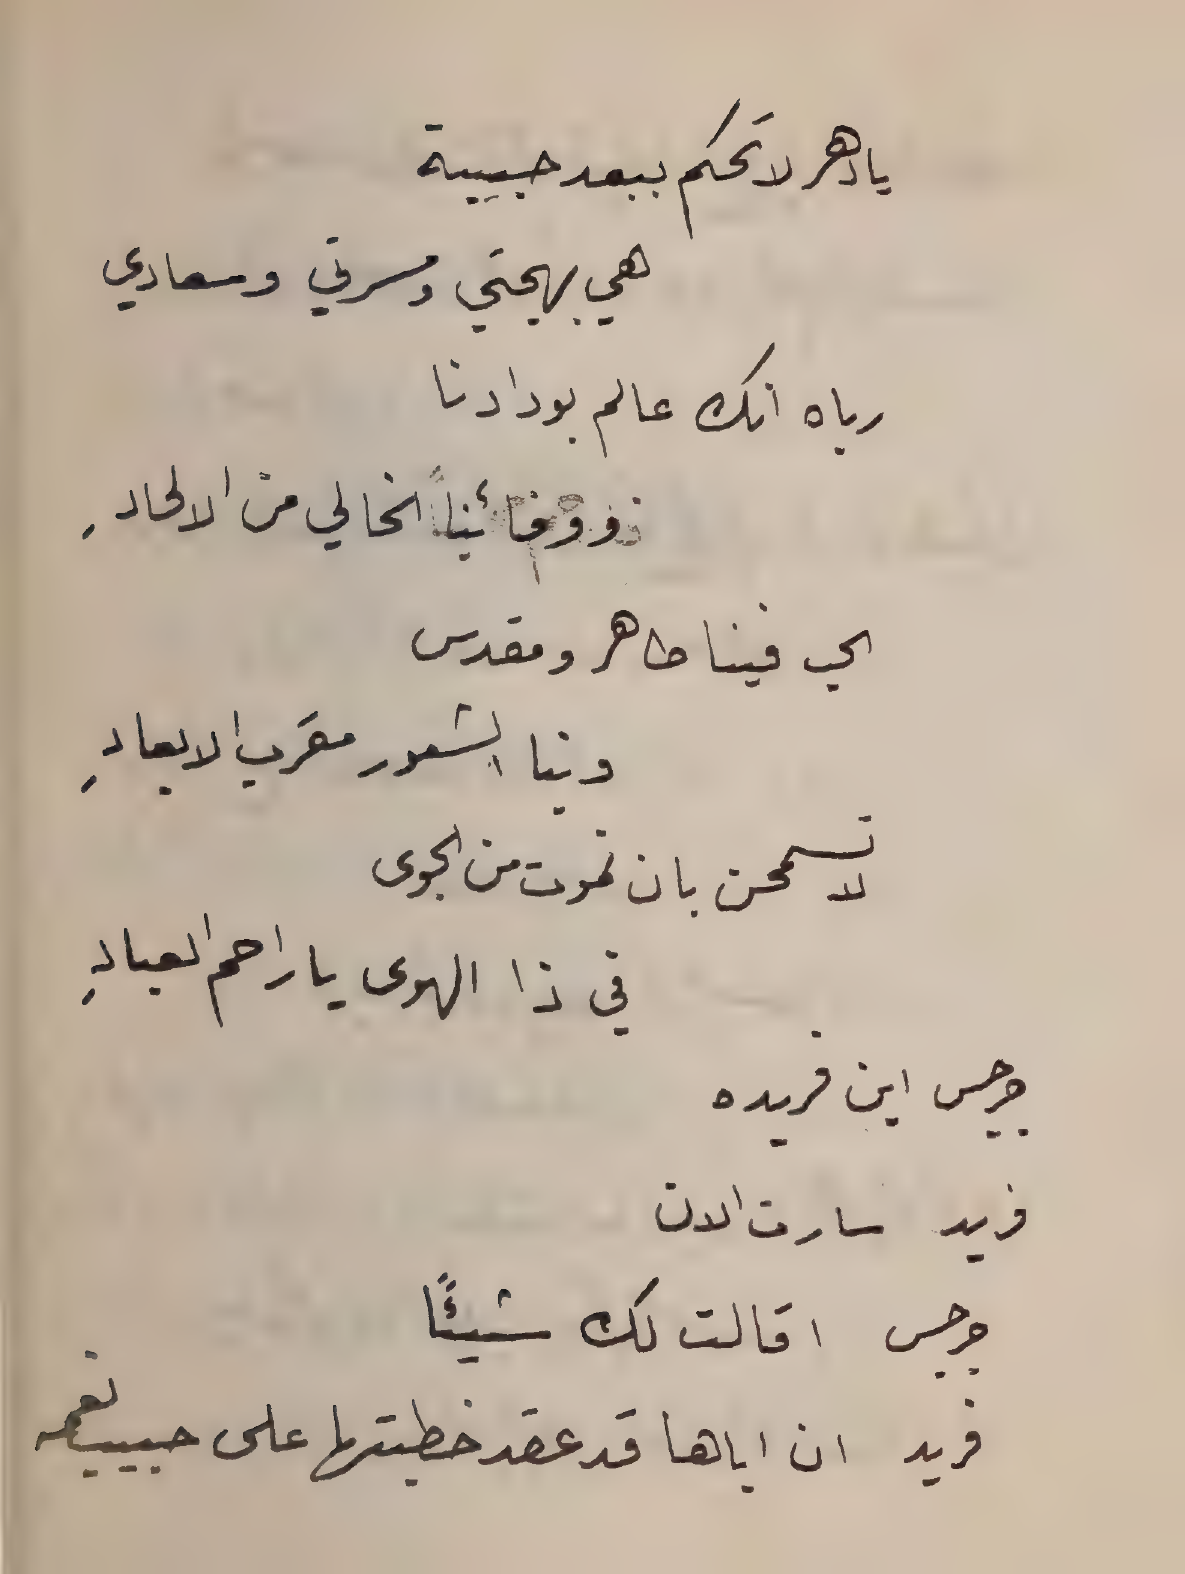 يا دهر لا تحكم ببعد حبيبة
هي بهجتي ومسرتي وسعادي
رباه انك عالم بودادنا
ووفائنا الخالي من الالحادِ
الحب فينا طاهر ومقدس
وبنا الشعور مقرب الابعادِ
لا تسمحن بان نموت من الجوى
في ذا الهوى يا راحم العبادِ
جرجس اين فريده
فريد سارت الان
جرجس اقالت لك شيئًا
فريد ان اباها قد عقد خطبتها على حبيب نعمه